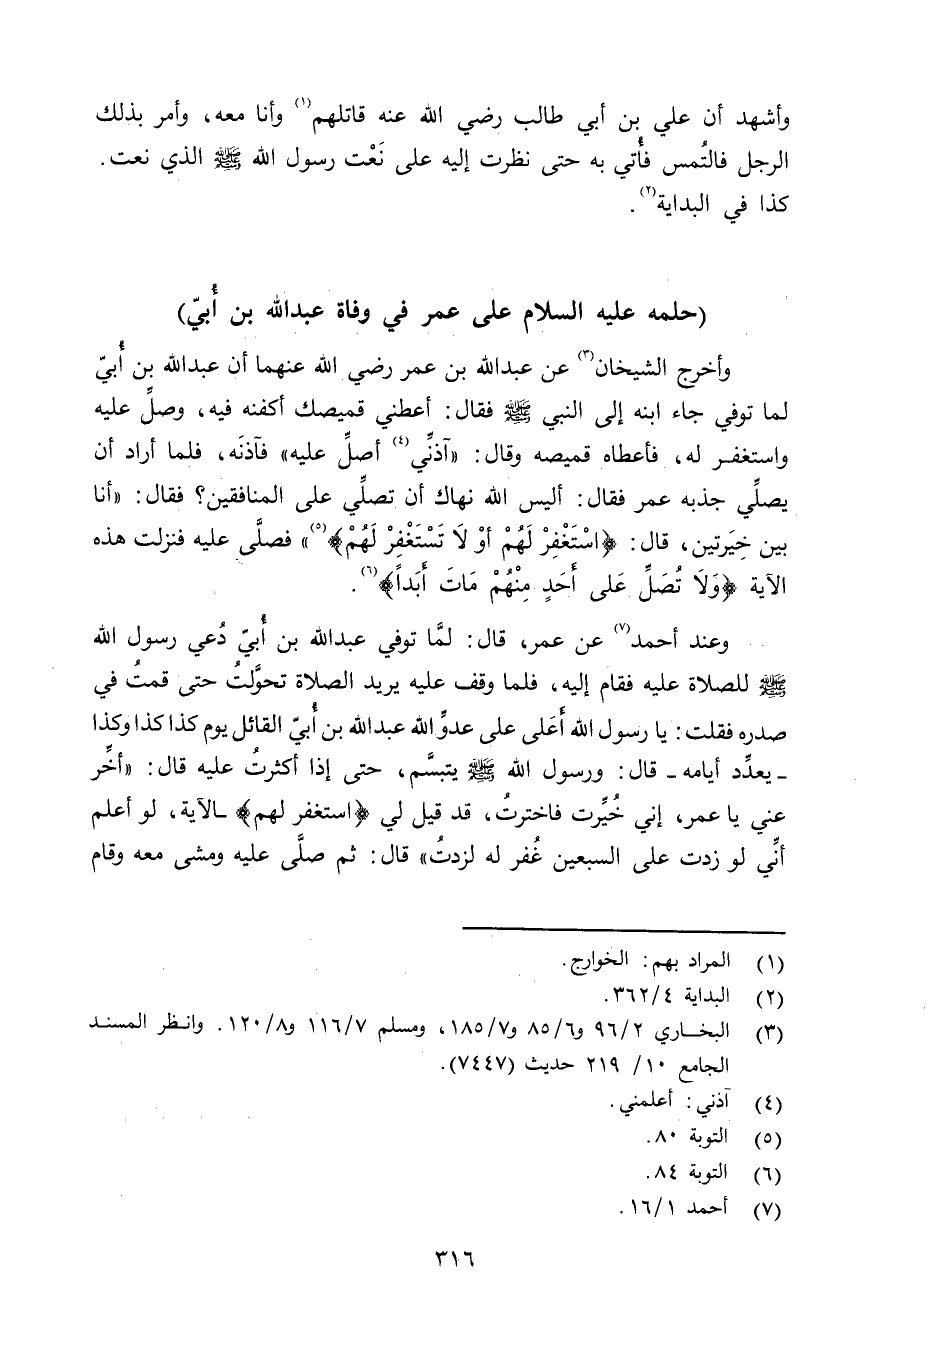 وأشهد أن علي بن أبي طالب رضي الله عنه قاتلهم(١) وأنا معه، وأمر بذلك
الرجل فالتُمس فأُتي به حتى نظرت إليه على نَعْت رسول الله ﷺ الذي نعت.
كذا في البداية(٢).
(حلمه عليه السلام على عمر في وفاة عبدالله بن أُبيّ)
وأخرج الشيخان(٣) عن عبدالله بن عمر رضي الله عنهما أن عبدالله بن أُبيّ
لما توفي جاء ابنه إلى النبي ﷺ فقال: أعطني قميصك أكفنه فيه، وصلِّ عليه
واستغفر له، فأعطاه قميصه وقال: «آذنِّي(٤) أصلِّ عليه» فآذنَه، فلما أراد أن
يصلِّي جذبه عمر فقال: أليس الله نهاك أن تصلِّي على المنافقين؟ فقال: «أنا
بين خِيَرتين، قال: ﴿اسْتَغْفِرْ لَهُمْ أوْ لَا تَسْتَغْفِرْ لَهُمْ﴾(٥)» فصلَّى عليه فنزلت هذه
الآية ﴿وَلَا تُصَلِّ عَلى أَحَدٍ مِنْهُمْ مَاتَ أَبَداً﴾(٦).
وعند أحمد(٧) عن عمر، قال: لمَّا توفي عبدالله بن أُبيّ دُعي رسول الله
ﷺ للصلاة عليه فقام إليه، فلما وقف عليه يريد الصلاة تحوَّلتُ حتى قمتُ في
صدره فقلت: يا رسول الله أَعَلى على عدوِّ الله عبدالله بن أُبيّ القائل يوم كذا كذا وكذا
ـ يعدِّد أيامه ـ قال: ورسول الله ﷺ يتبسَّم، حتى إذا أكثرتُ عليه قال: «أخِّر
عني يا عمر، إني خُيِّرت فاخترتُ، قد قيل لي ﴿استغفر لهم﴾ ـالآية، لو أعلم
أنِّي لو زدت على السبعين غُفر له لزدتُ» قال: ثم صلَّى عليه ومشى معه وقام
(١) المراد بهم: الخوارج.
(٢) البداية ٣٦٢/٤.
(٣) البخاري ٩٦/٢ و٨٥/٦ و١٨٥/٧، ومسلم ١١٦/٧ و١٢٠/٨. وانظر المسند
الجامع ١٠/ ٢١٩ حديث (٧٤٤٧).
(٤) آذني: أعلمني.
(٥) التوبة ٨٠.
(٦) التوبة ٨٤.
(٧) أحمد ١٦/١.
٣١٦